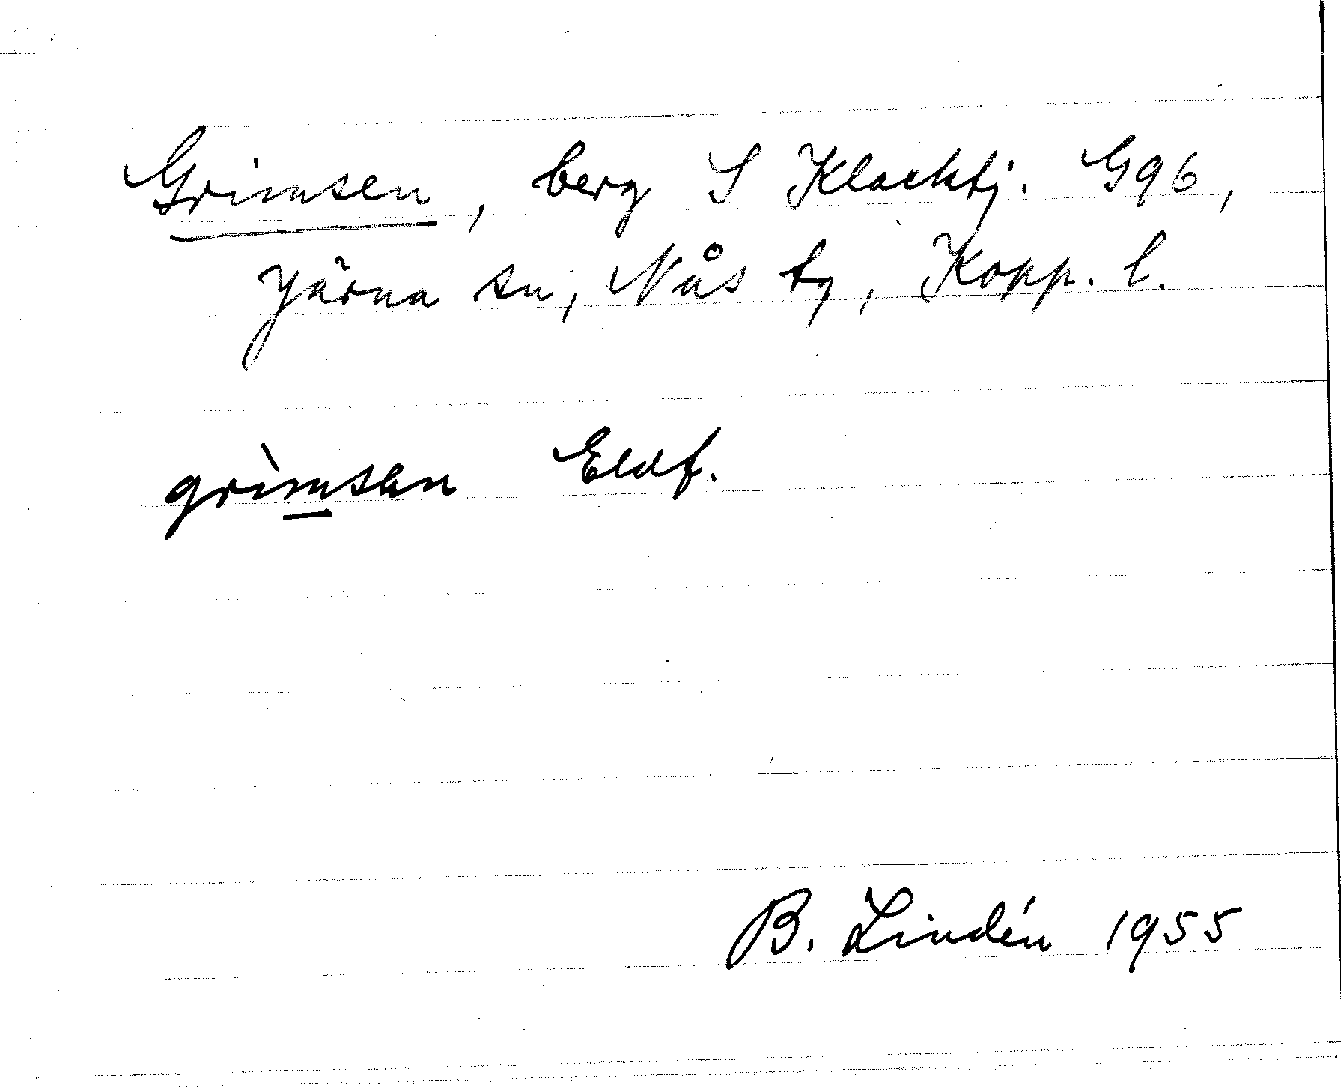 Grimsen, berg S Klacktj. G96,
Järna sn, Nås tg, Kopp. l.
grìmsən Eldf.
B. Lindén 1955